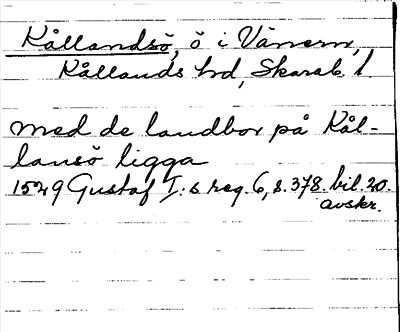 Kållandsö, ö i Vänern,
Kållands hd, Skarab. l.
med de landbor på Kål-
lansö ligga
1529 Gustaf I:s reg. 6, s. 378. bil. 20.
avskr.